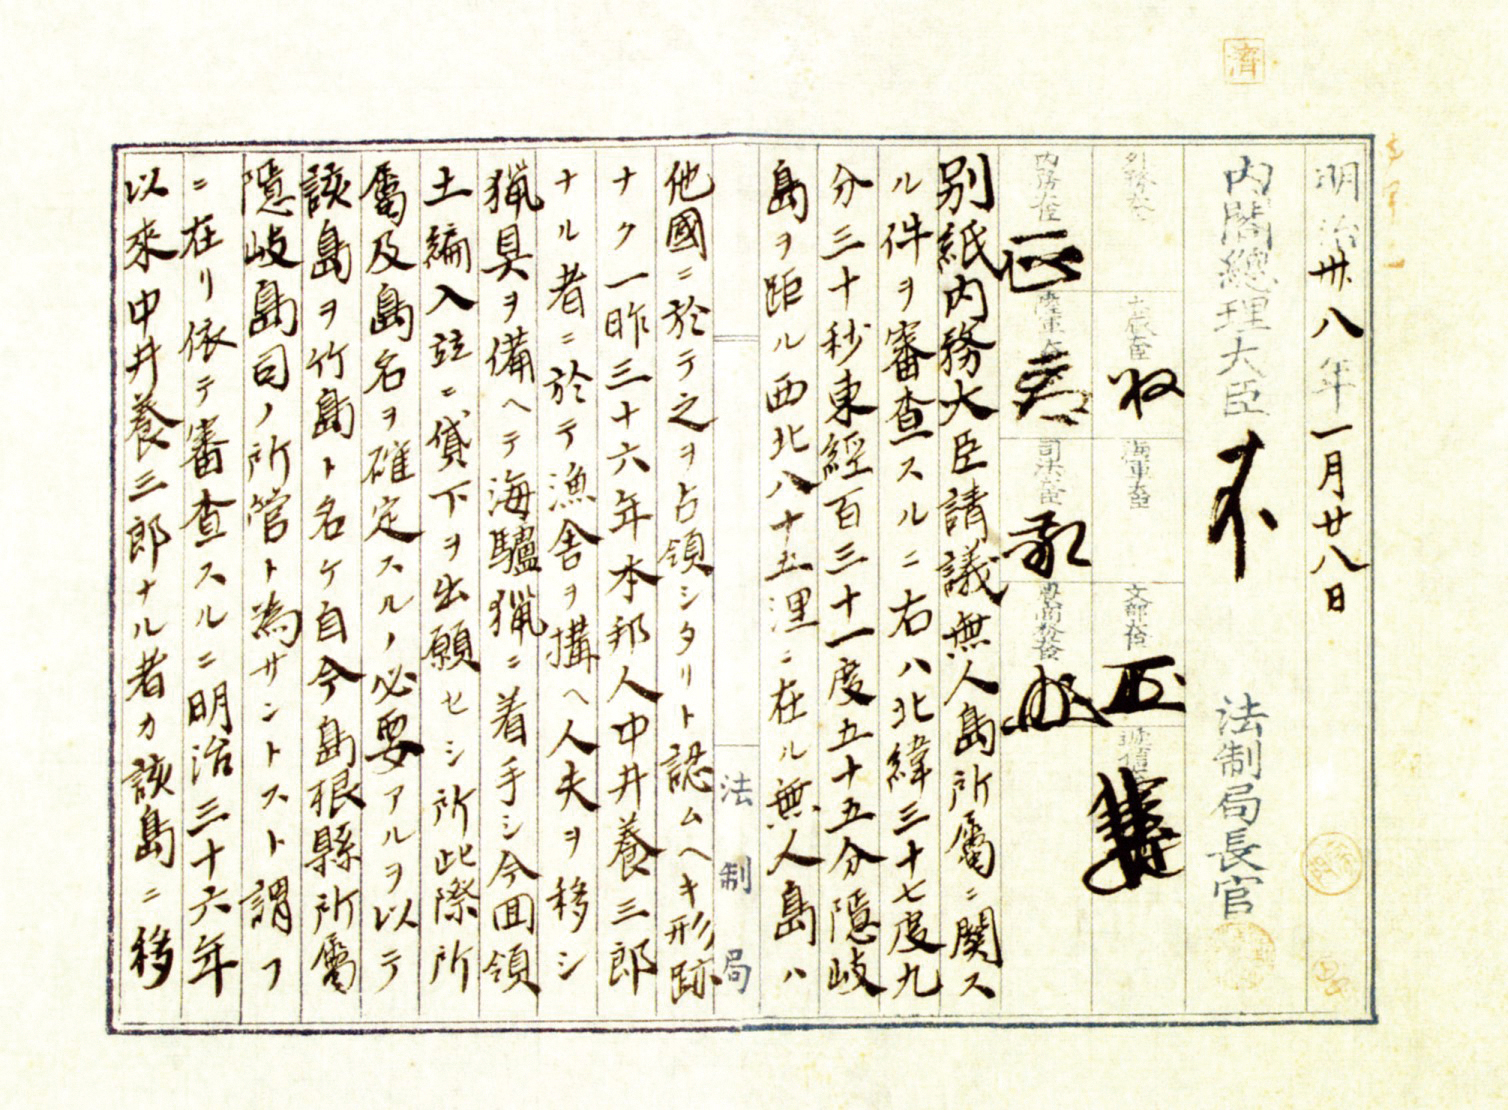 済
明治卅八年一月廿八日
内閣總理大臣
法制局長官
外務大臣
大蔵大臣
海軍大臣
文部大臣
逓信
内務大臣
陸軍大臣
司法大臣
農商務大臣
別紙内務大臣請議無人島所屬ニ関ス
ル件ヲ審査スルニ右ハ北緯三十七度九
分三十秒東經百三十一度五十五分隠岐
島ヲ距ル西北八十五浬ニ在ル無人島ハ
法制局
他國ニ於テ之ヲ占領シタリト認ムヘキ形跡
ナク一昨三十六年本邦人中井養三郎
ナル者ニ於テ漁舎ヲ搆ヘ人夫ヲ移シ
猟具ヲ備ヘテ海驢猟ニ着手シ今回領
土編入並ニ貸下ヲ出願セシ所此際所
屬及島名ヲ確定スルノ必要アルヲ以テ
該島ヲ竹島ト名ケ自今島根縣所屬
隠岐島司ノ所管ト為サントスト謂フ
ニ在リ依テ審査スルニ明治三十六年
以来中井養三郎ナル者カ該島ニ移